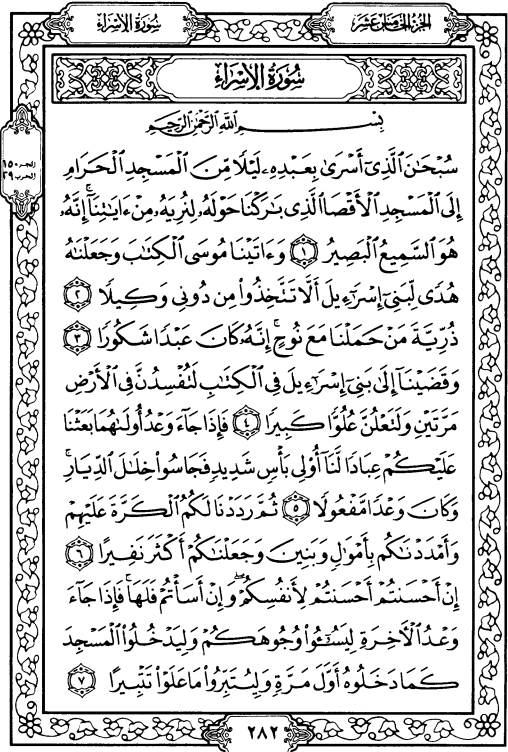 سُورَةُ الإِسْرَاءِ
الجُزْءُ الخَامِسُ عَشَرَ
سُورَةُ الإِسْرَاءِ
الجزء ١٥
الحزب ٢٩
بِسْمِ اللَّهِ الرَّحْمَٰنِ الرَّحِيمِ
سُبْحَٰنَ الَّذِىٓ أَسْرَىٰ بِعَبْدِهِۦ لَيْلًا مِّنَ الْمَسْجِدِ الْحَرَامِ
إِلَى الْمَسْجِدِ الْأَقْصَا الَّذِى بَٰرَكْنَا حَوْلَهُۥ لِنُرِيَهُۥ مِنْ ءَايَٰتِنَآ ۚ إِنَّهُۥ
هُوَ السَّمِيعُ الْبَصِيرُ ١ وَءَاتَيْنَا مُوسَى الْكِتَٰبَ وَجَعَلْنَٰهُ
هُدًى لِّبَنِىٓ إِسْرَٰٓءِيلَ أَلَّا تَتَّخِذُوا۟ مِن دُونِى وَكِيلًا ٢
ذُرِّيَّةَ مَنْ حَمَلْنَا مَعَ نُوحٍ ۚ إِنَّهُۥ كَانَ عَبْدًا شَكُورًا ٣
وَقَضَيْنَآ إِلَىٰ بَنِىٓ إِسْرَٰٓءِيلَ فِى الْكِتَٰبِ لَتُفْسِدُنَّ فِى الْأَرْضِ
مَرَّتَيْنِ وَلَتَعْلُنَّ عُلُوًّا كَبِيرًا ٤ فَإِذَا جَآءَ وَعْدُ أُولَىٰهُمَا بَعَثْنَا
عَلَيْكُمْ عِبَادًا لَّنَآ أُو۟لِى بَأْسٍ شَدِيدٍ فَجَاسُوا۟ خِلَٰلَ الدِّيَارِ ۚ
وَكَانَ وَعْدًا مَّفْعُولًا ٥ ثُمَّ رَدَدْنَا لَكُمُ الْكَرَّةَ عَلَيْهِمْ
وَأَمْدَدْنَٰكُم بِأَمْوَٰلٍ وَبَنِينَ وَجَعَلْنَٰكُمْ أَكْثَرَ نَفِيرًا ٦
إِنْ أَحْسَنتُمْ أَحْسَنتُمْ لِأَنفُسِكُمْ ۖ وَإِنْ أَسَأْتُمْ فَلَهَا ۚ فَإِذَا جَآءَ
وَعْدُ الْءَاخِرَةِ لِيَسُـُٔوا۟ وُجُوهَكُمْ وَلِيَدْخُلُوا۟ الْمَسْجِدَ
كَمَا دَخَلُوهُ أَوَّلَ مَرَّةٍ وَلِيُتَبِّرُوا۟ مَا عَلَوْا۟ تَتْبِيرًا ٧
٢٨٢